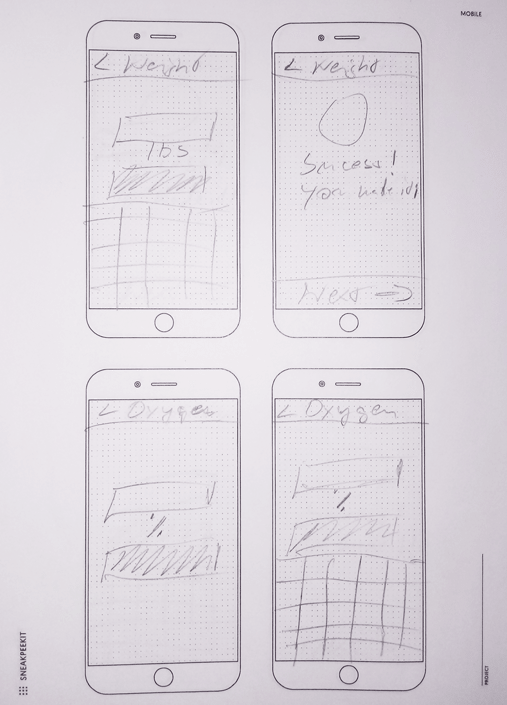 MOBILE
< Weight
lbs
< Weight
Success!
You made it!
Next →
< Oxygen
%
< Oxygen
%
SNEAKPEEKIT
PROJECT